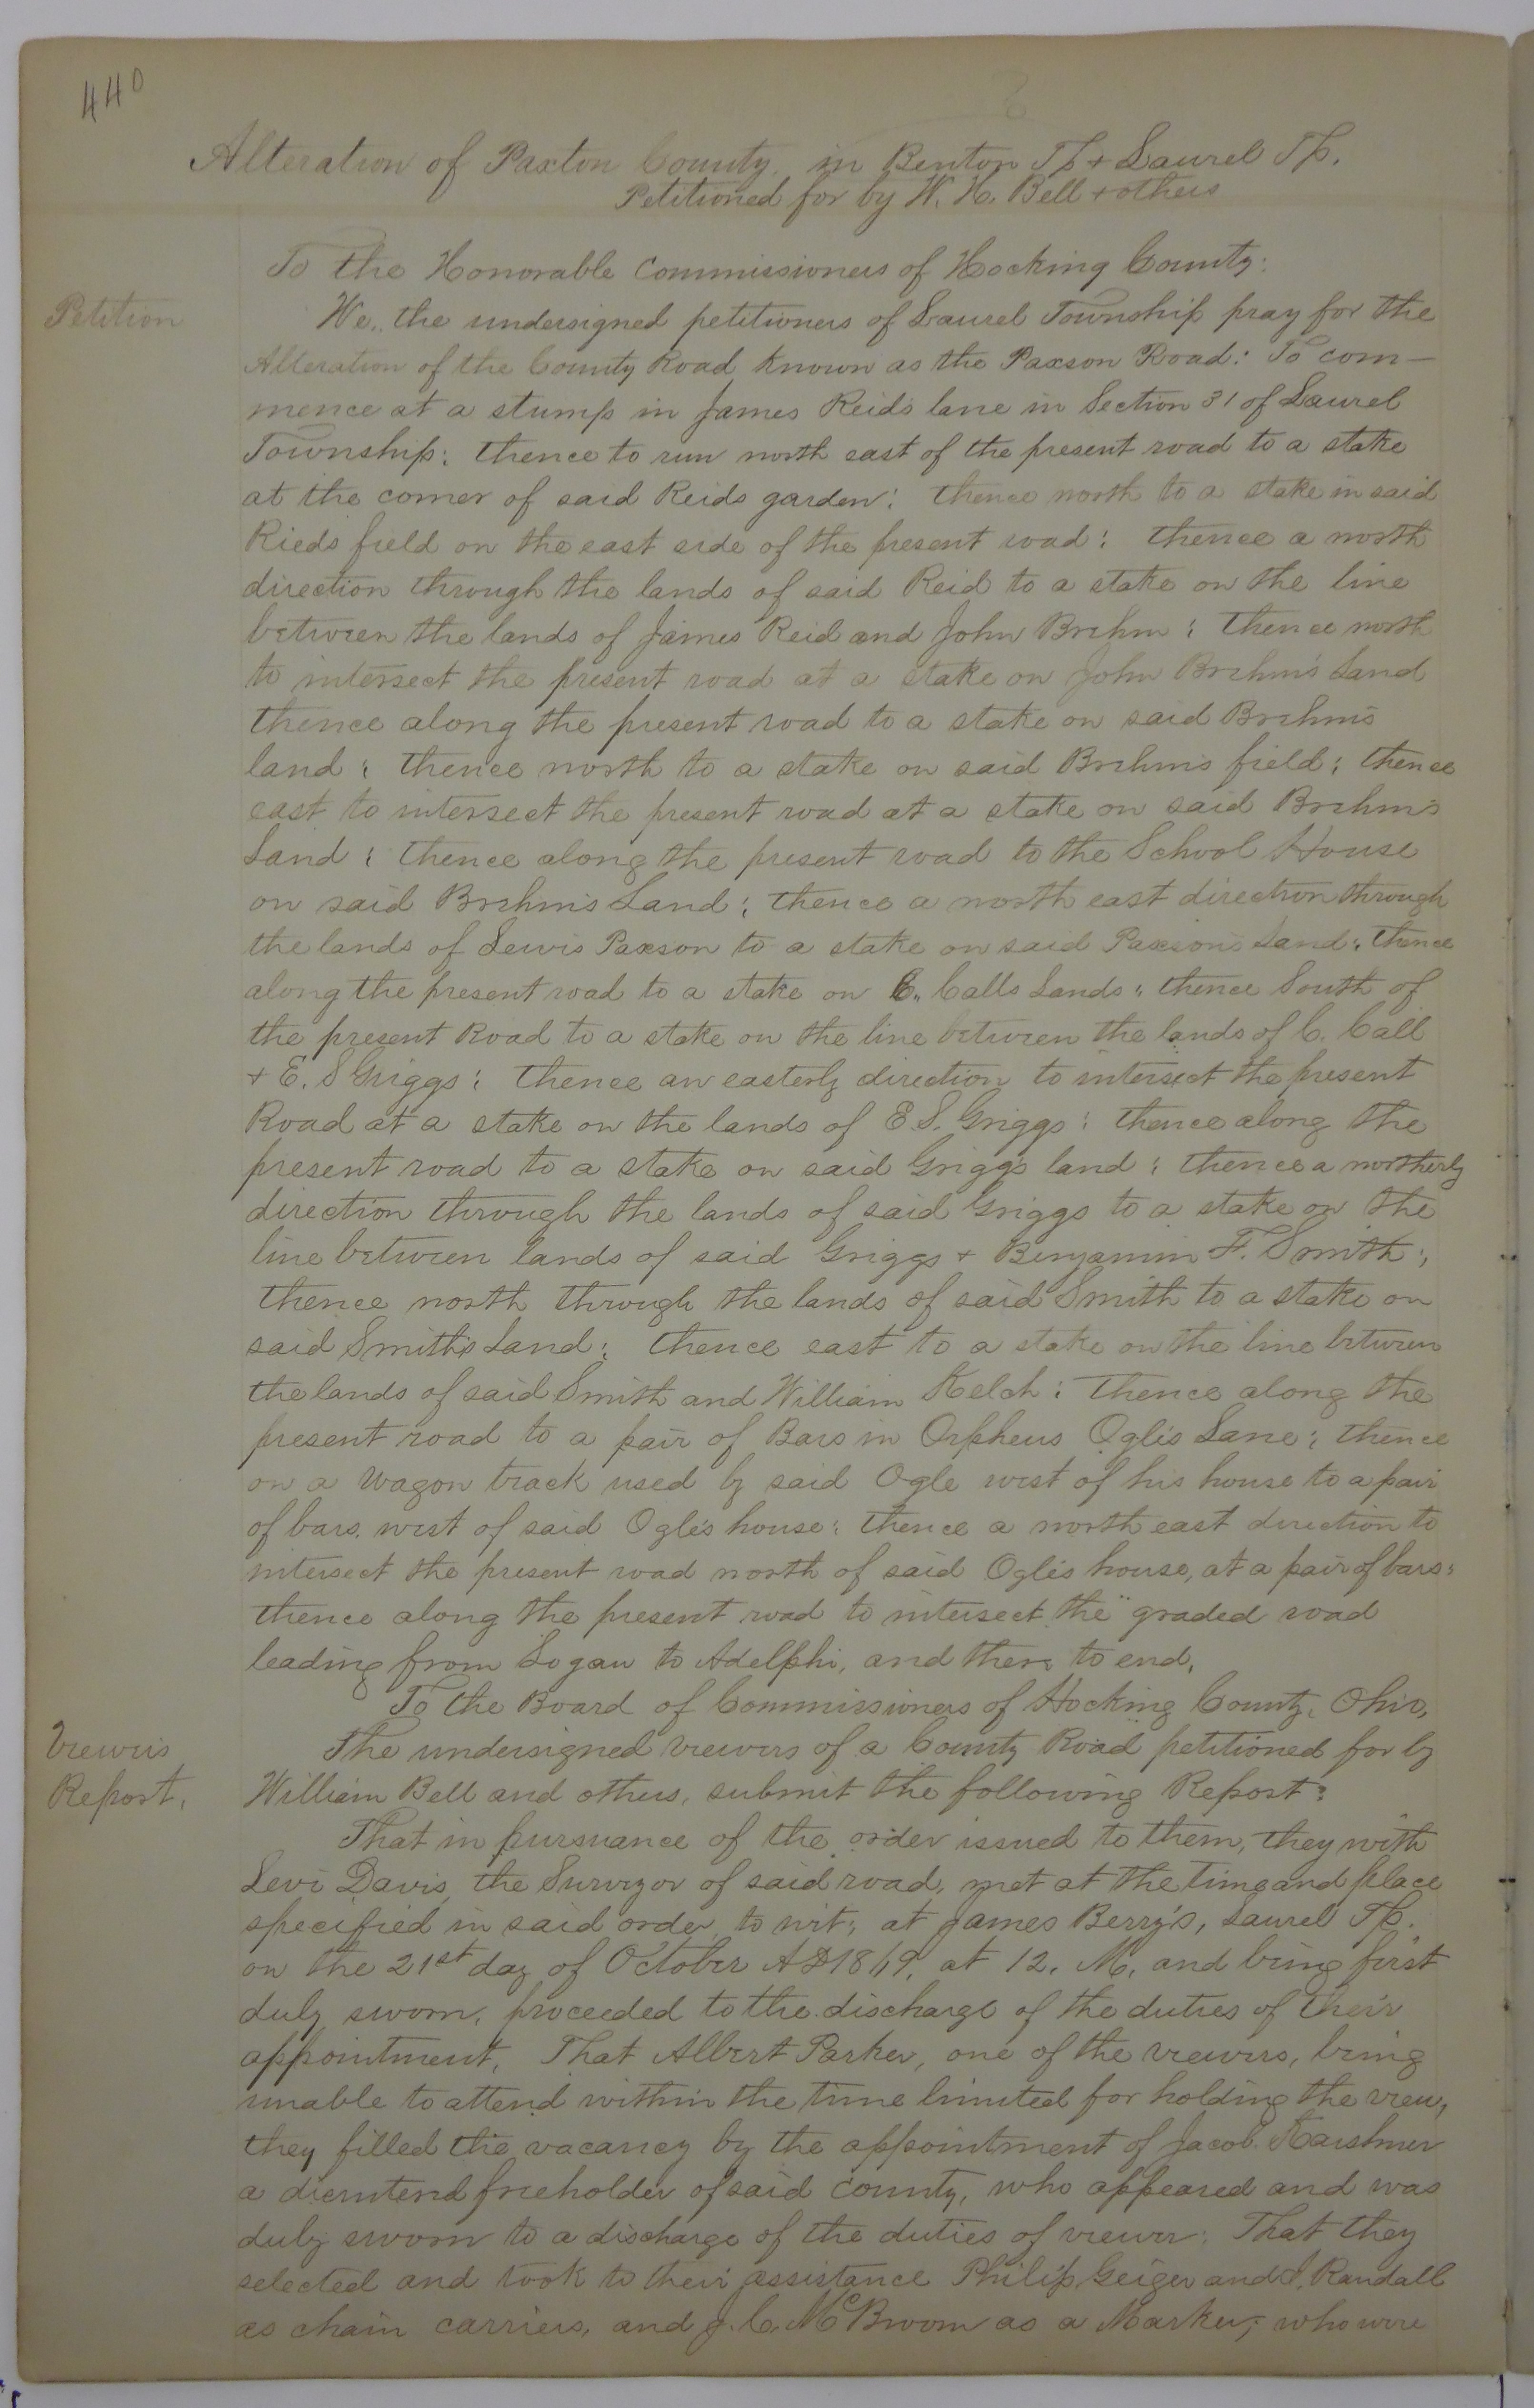 440
Alteration of Paxton County. in Benton Tp + Laurel Tp.
Petitioned for by W. H. Bell + others
To the Honorable Commissioners of Hocking County:
Petition
We, the undersigned petitioners of Laurel Township pray for the
Alteration of the County Road known as the Paxson Road: To com-
mence at a stump in James Reids lane in Section 31 of Laurel
Township; thence to run north east of the present road to a stake
at the corner of said Reids garden; thence north to a stake in said
Rieds field on the east side of the present road; thence a north
direction through the lands of said Reid to a stake on the line
between the lands of James Reid and John Brehm; thence north
to intersect the present road at a stake on John Brehm's Land
thence along the present road to a stake on said Brehm's
land; thence north to a stake on said Brehm's field; thence
east to intersect the present road at a stake on said Brehm's
Land; thence along the present road to the School House
on said Brehm's Land; thence a north east direction through
the lands of Lewis Paxson to a stake on said Paxson's Land; thence
along the present road to a stake on C. Calls Lands; thence South of
the present Road to a stake on the line between the lands of C. Call
+ E. S Griggs; thence an easterly direction to intersect the present
Road at a stake on the lands of E. S. Griggs; thence along the
present road to a stake on said Griggs land; thence a northerly
direction through the lands of said Griggs to a stake on the
line between lands of said Griggs + Benjamin F. Smith;
thence north through the lands of said Smith to a stake on
said Smith's Land; thence east to a stake on the line between
the lands of said Smith and William Kelch; thence along the
present road to a pair of Bars in Orpheus Ogle's Lane; thence
on a wagon track used by said Ogle west of his house to a pair
of bars. west of said Ogle's house; thence a north east direction to
intersect the present road north of said Ogle's house, at a pair of bars;
thence along the present road to intersect the graded road
leading from Logan to Adelphi, and there to end.
To the Board of Commissioners of Hocking County, Ohio,
Viewers
Report.
The undersigned viewers of a County Road petitioned for by
William Bell and others, submit the following Report:
That in pursuance of the order issued to them, they with
Levi Davis, the Surveyor of said road, met at the time and place
specified in said order, to wit; at James Berry's, Laurel Tp.
on the 21st day of October AD 1869, at 12. M, and being first
duly sworn, proceeded to the discharge of the duties of their
appointment. That Albert Parker, one of the viewers, being
unable to attend within the time limited for holding the view,
they filled the vacancy by the appointment of Jacob Karshner
a freeholder of said County, who appeared and was
duly sworn to a discharge of the duties of viewer: That they
selected and took to their assistance Philip Geiger and Randall
as chain carriers, and J. C. McBroom as a Marker, who were